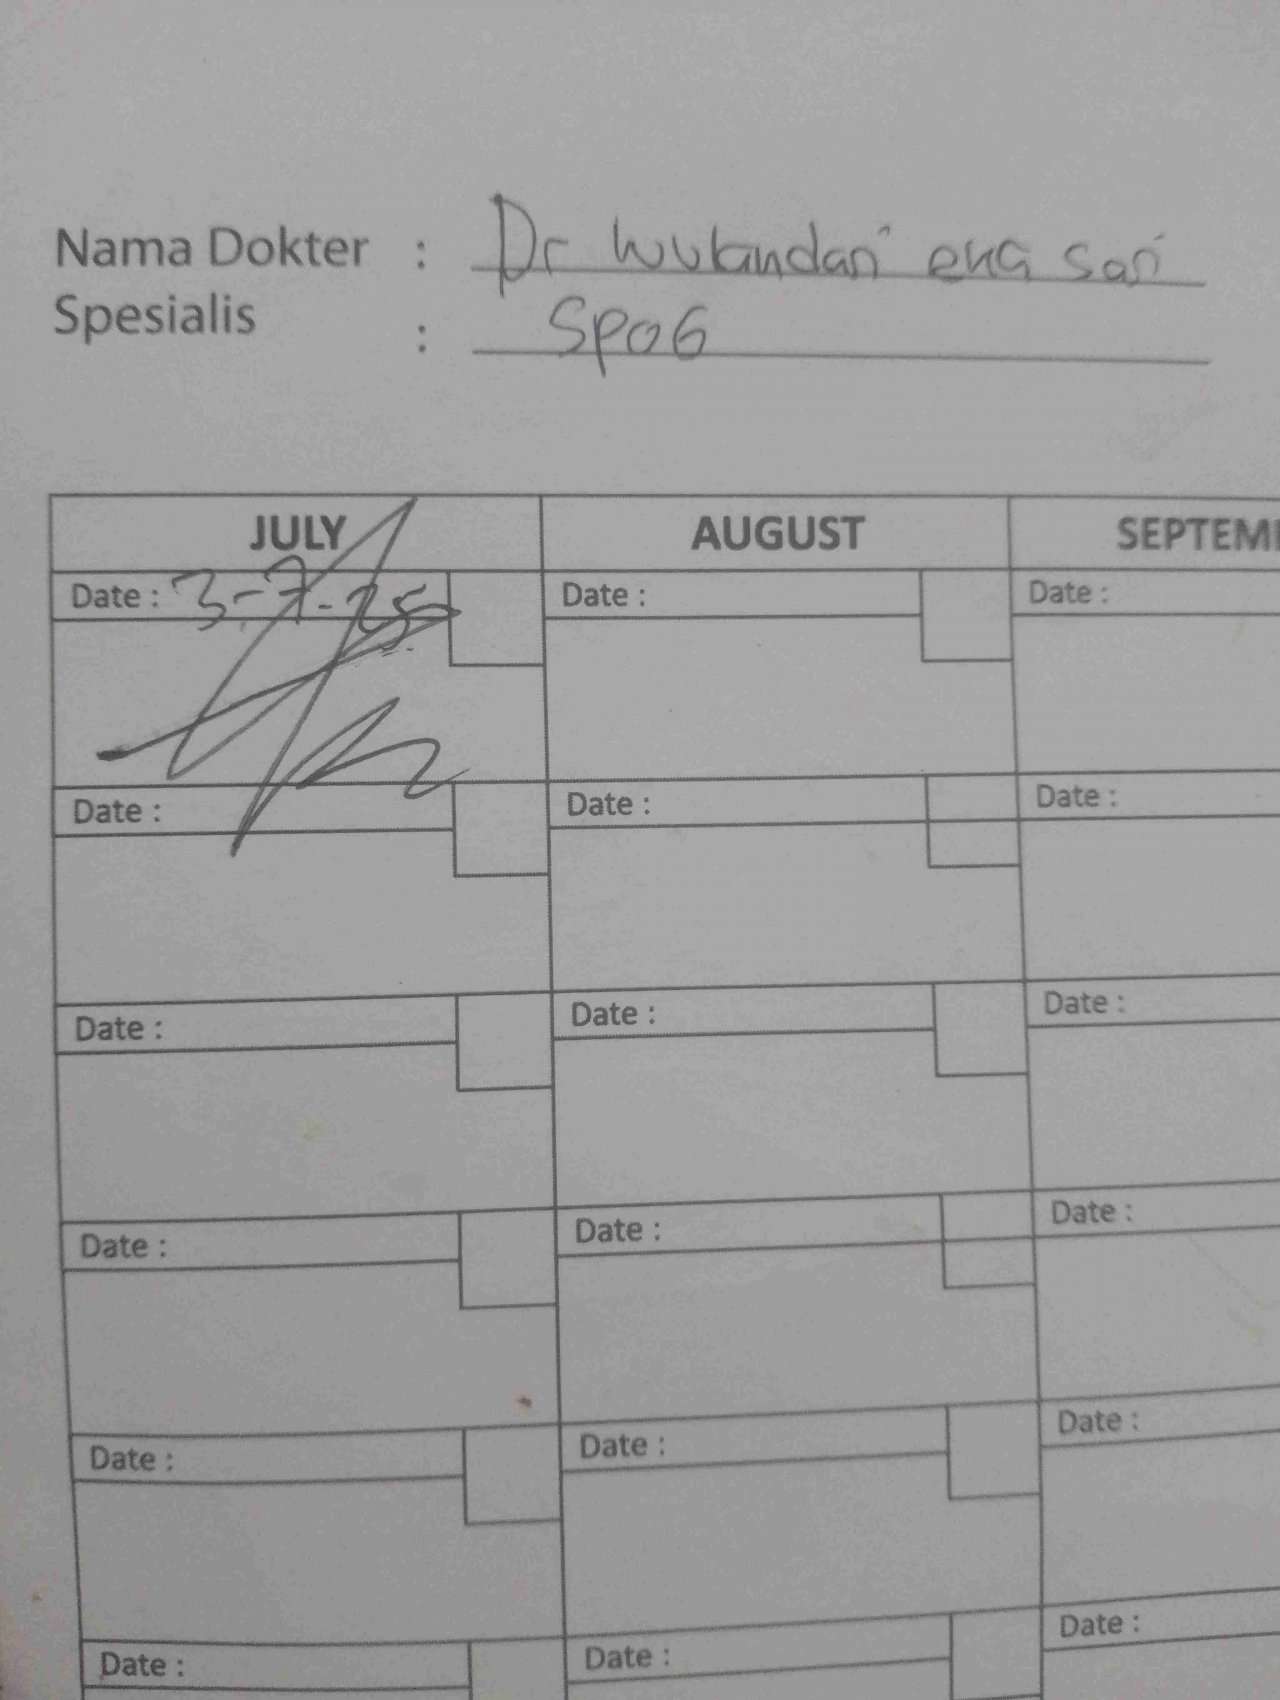 Nama Dokter : Dr Wulandari eka sari
Spesialis : SPOG
JULY AUGUST SEPTEM
Date : 3-7-25 Date : Date :
Date : Date : Date :
Date : Date : Date :
Date : Date : Date :
Date : Date : Date :
Date : Date : Date :